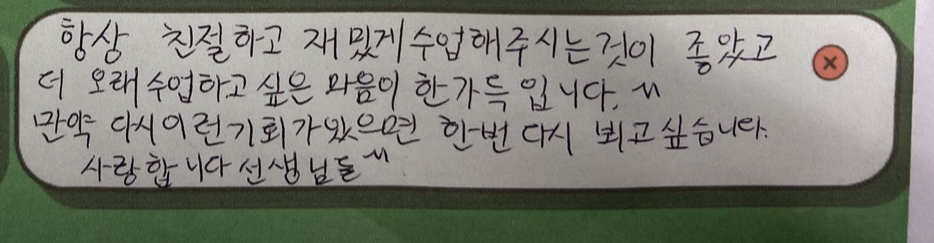 항상 친절하고 재밌게 수업해주시는것이 좋았고
더 오래 수업하고 싶은 마음이 한가득입니다. ^^
만약 다시 이런기회가있으면 한번 다시 뵈고싶습니다.
사랑합니다 선생님들^^